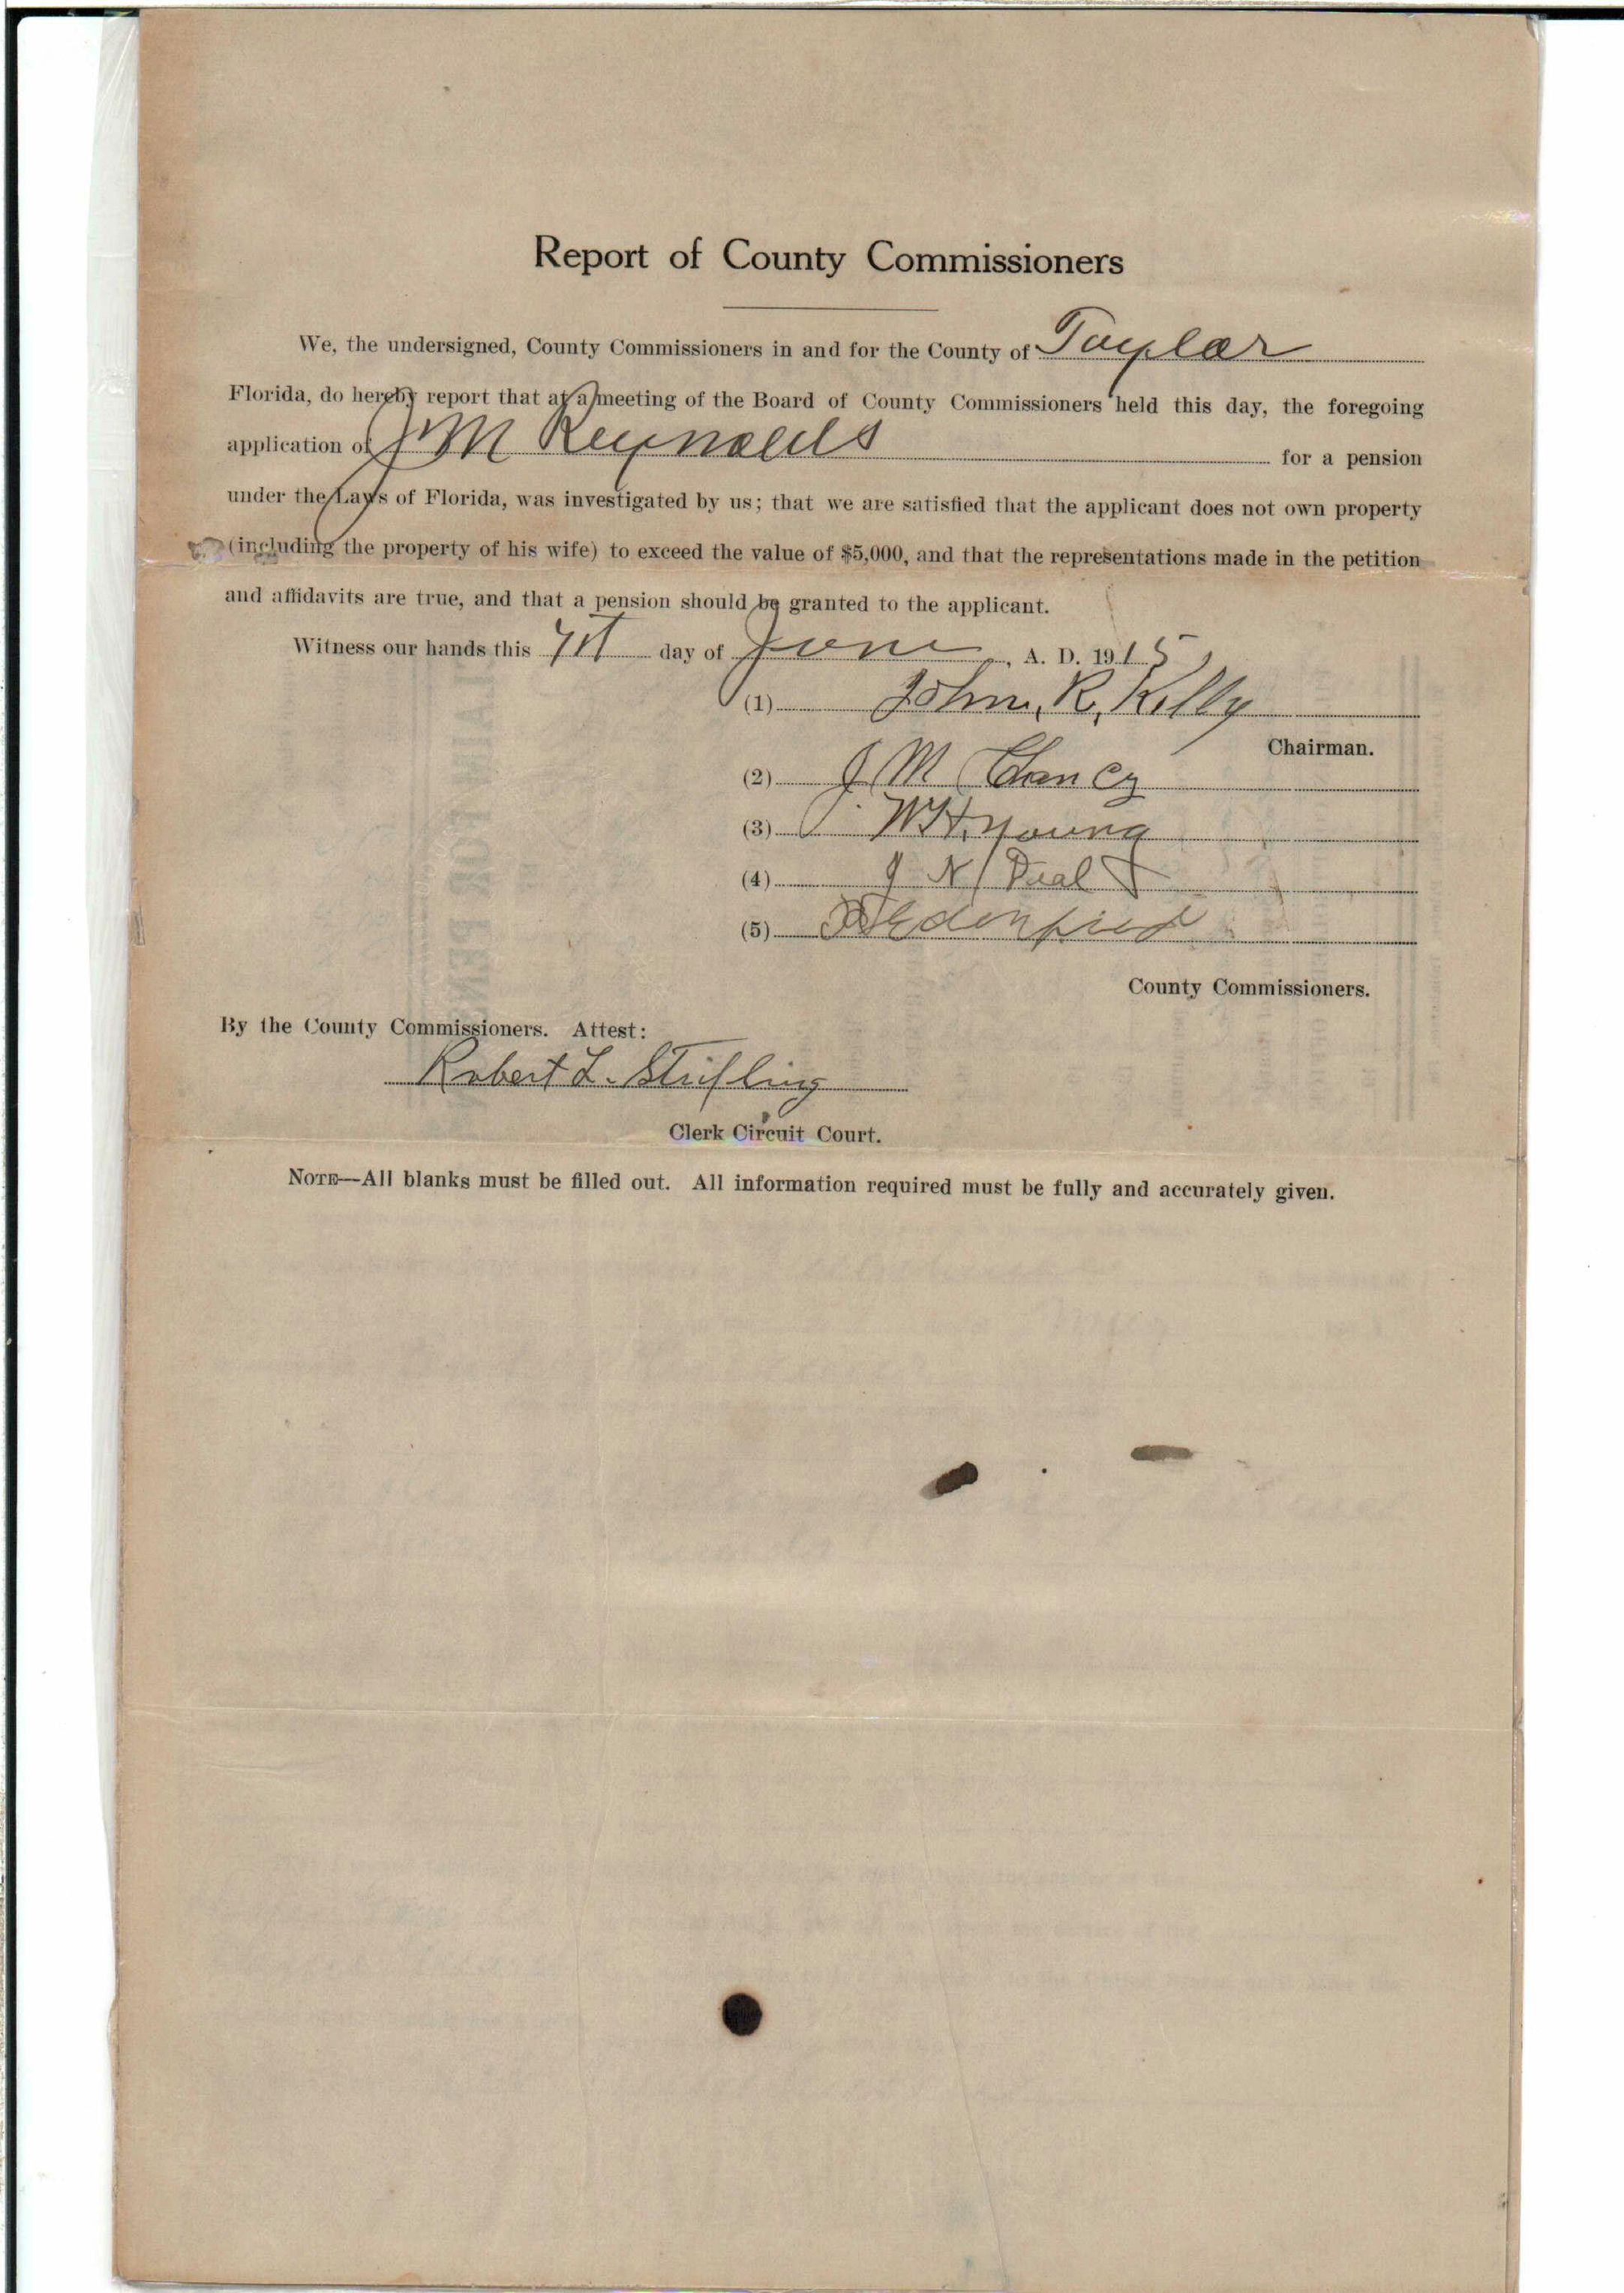 Report of County Commissioners
We, the undersigned, County Commissioners in and for the County of Taylor
Florida, do hereby report that at a meeting of the Board of County Commissioners held this day, the foregoing
application of J M Reynolds for a pension
under the Laws of Florida, was investigated by us; that we are satisfied that the applicant does not own property
(including the property of his wife) to exceed the value of $5,000, and that the representations made in the petition
and affidavits are true, and that a pension should be granted to the applicant.
Witness our hands this day of June, A. D. 1915
(1) John, R, Kelly
Chairman.
(2) J M Chancy
(3) W H. Young
(4) J N
(5)
County Commissioners.
By the County Commissioners. Attest:
Robert L. Stripling
Clerk Circuit Court.
NOTE—All blanks must be filled out. All information required must be fully and accurately given.